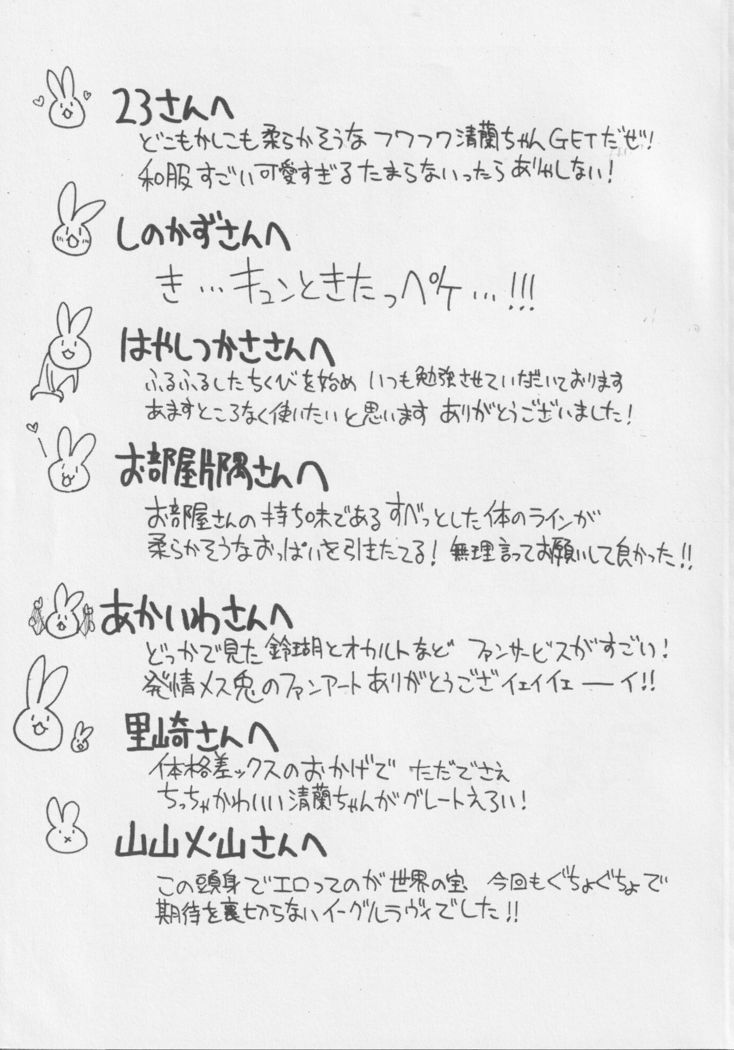 23さんへ
どこもかしこも柔らかそうな フワフワ清蘭ちゃんGETだぜ!
和服すごい可愛すぎるたまらないったらありゃしない!
しのかずさんへ
き…キュンときたっペケ…!!!
はやしつかささんへ
ふるふるしたちくびを始め いつも勉強させていただいております
あますところなく使いたいと思います ありがとうございました!
お部屋片隅さんへ
お部屋さんの持ち味であるすべっとした体のラインが
柔らかそうなおっぱいを引きたてる! 無理言ってお願いして良かった!!
あかいわさんへ
どっかで見た鈴瑚とオカルトなど ファンサービスがすごい!
発情メス兎のファンアートありがとうござイェイイェーイ!!
里崎さんへ
体格差ックスのおかげで ただでさえ
ちっちゃかわいい清蘭ちゃんがグレートえろい!
山山山さんへ
この頭身でエロってのが世界の宝 今回もぐちょぐちょで
期待を裏切らないイーグルラヴィでした!!